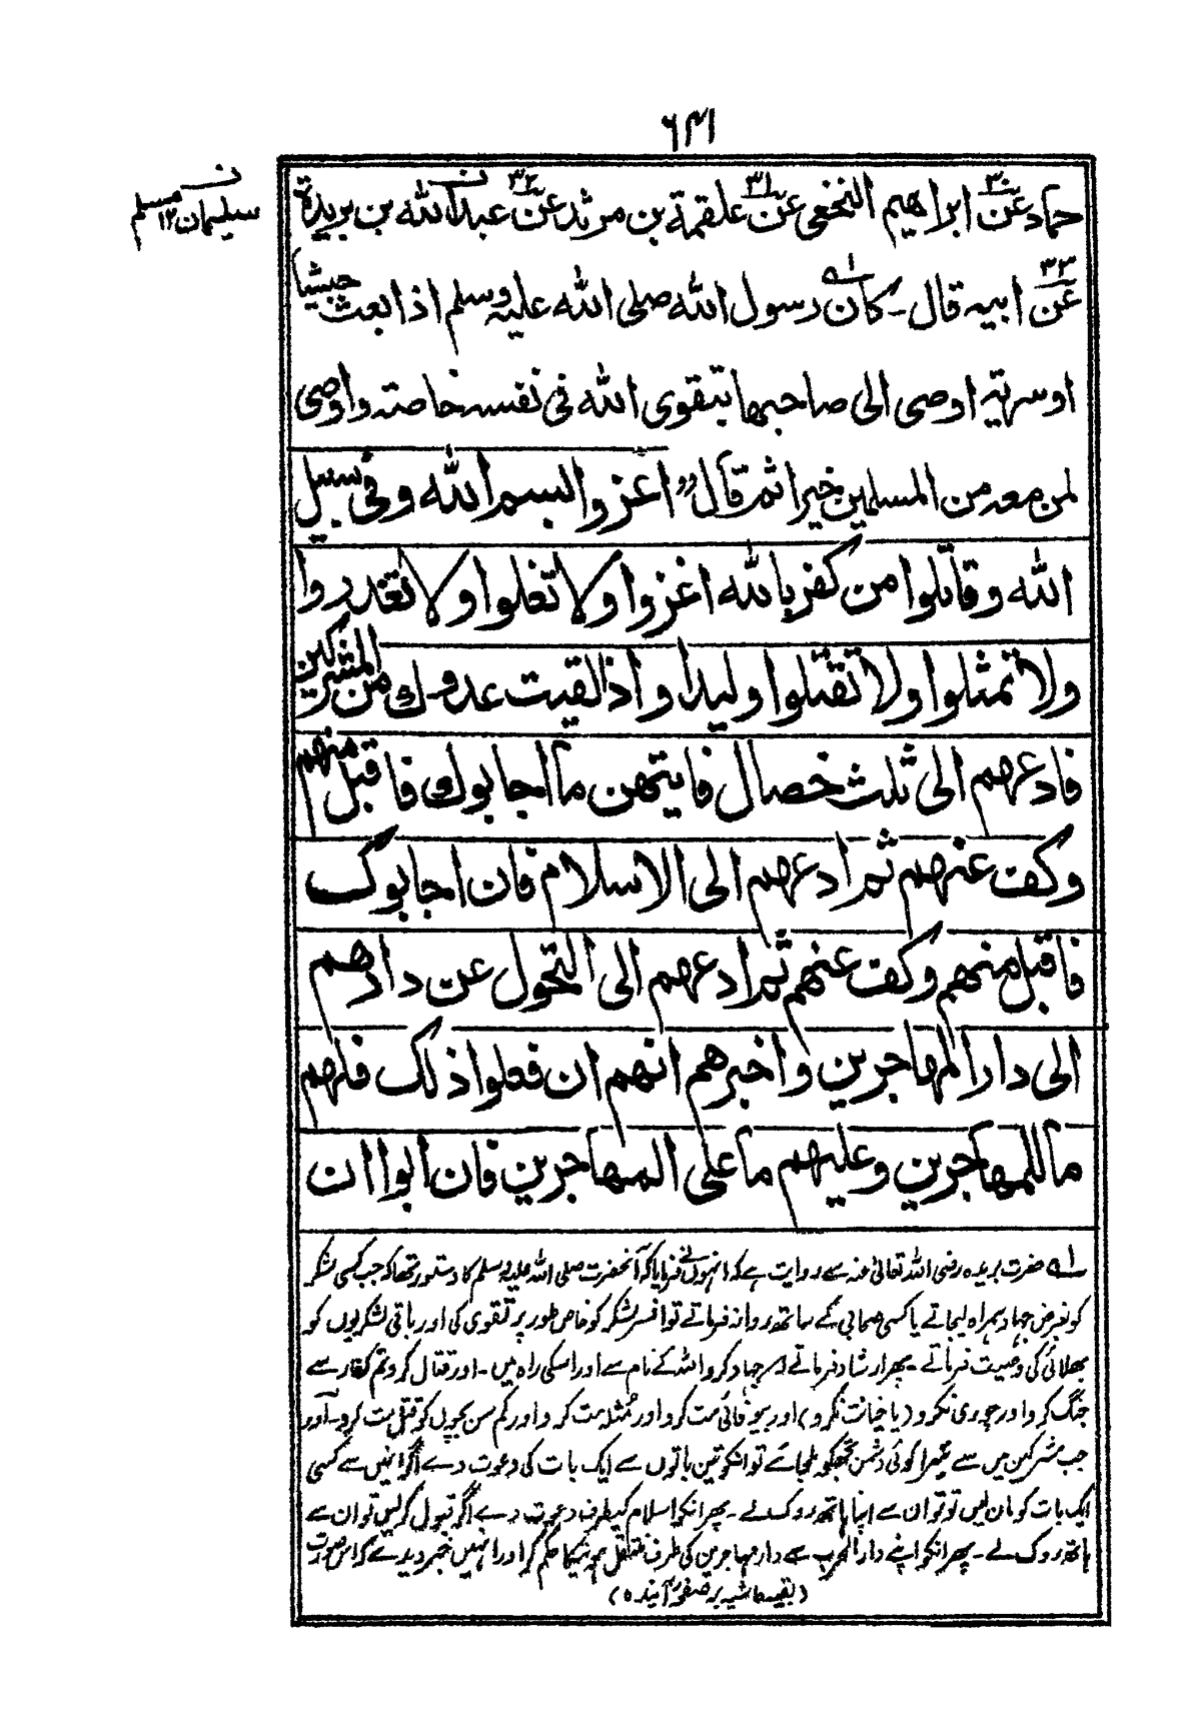 ۶۴۱
حماد عن ۳۰ ابراهيم النخعي عن ۳۱ علقمة بن مرثد عن ۳۲ عبد الله بن بريدة
ن سليمان ۱۲ مسلم
عن ۳۳ ابيه قال ـ كان ۱ رسول الله صلى الله عليه وسلم اذا بعث جيشا
او سرية اوصى الى صاحبها بتقوى الله فى نفسه خاصة واوصى
لمن معه من المسلمين خيرا ثم قال "اغزوا بسم الله وفى سبيل
الله وقاتلوا من كفر بالله اغزوا ولا تغلوا ولا تغدروا
ولا تمثلوا ولا تقتلوا وليدا واذا لقيت عدوك من المشركين
فادعهم الى ثلث خصال فايتهن ما اجابوك فاقبل منهم
وكف عنهم ثم ادعهم الى الاسلام فان اجابوك
فاقبل منهم وكف عنهم ثم ادعهم الى التحول عن دارهم
الى دار المهاجرين واخبرهم انهم ان فعلوا ذلك فلهم
ما للمهاجرين وعليهم ما على المهاجرين فان ابوا ان
۱ حضرت بریدہ رضی اللہ تعالیٰ عنہ سے روایت ہے کہ انہوں نے فرمایا کہ آنحضرت صلی اللہ علیہ وسلم کا دستور تھا کہ جب کسی لشکر
کو بغرض جہاد ہمراہ لیجاتے یا کسی صحابی کے ساتھ روانہ فرماتے تو افسر لشکر کو خاص طور پر تقوی کی اور باقی لشکریوں کو
بھلائی کی وصیت فرماتے ـ پھر ارشاد فرماتے جہاد کرو اللہ کے نام سے اور اسکی راہ میں ـ اور قتال کرو تم کفار سے
جنگ کرو اور چوری نکرو (یا خیانت نکرو) اور بیوفائی مت کرو اور مُثلہ مت کرو اور کم سن بچوں کو قتل مت کرو ـ اور
جب مشرکین میں سے تیرا کوئی دشمن تجھکو ملجائے تو انکو تین باتوں سے ایک بات کی دعوت دے اگر انیں سے کسی
ایک بات کو مان لیں تو تو ان سے اپنا ہاتھ روک لے ـ پھر انکو اسلام کیطرف دعوت دے اگر قبول کرلیں تو ان سے
ہاتھ روک لے ـ پھر انکو اپنے دار الحرب سے دار مہاجرین کی طرف منتقل ہونیکا حکم کر اور انہیں خبر دیدے کہ اس صورت
(بقیہ حاشیہ بر صفحہ آئندہ)